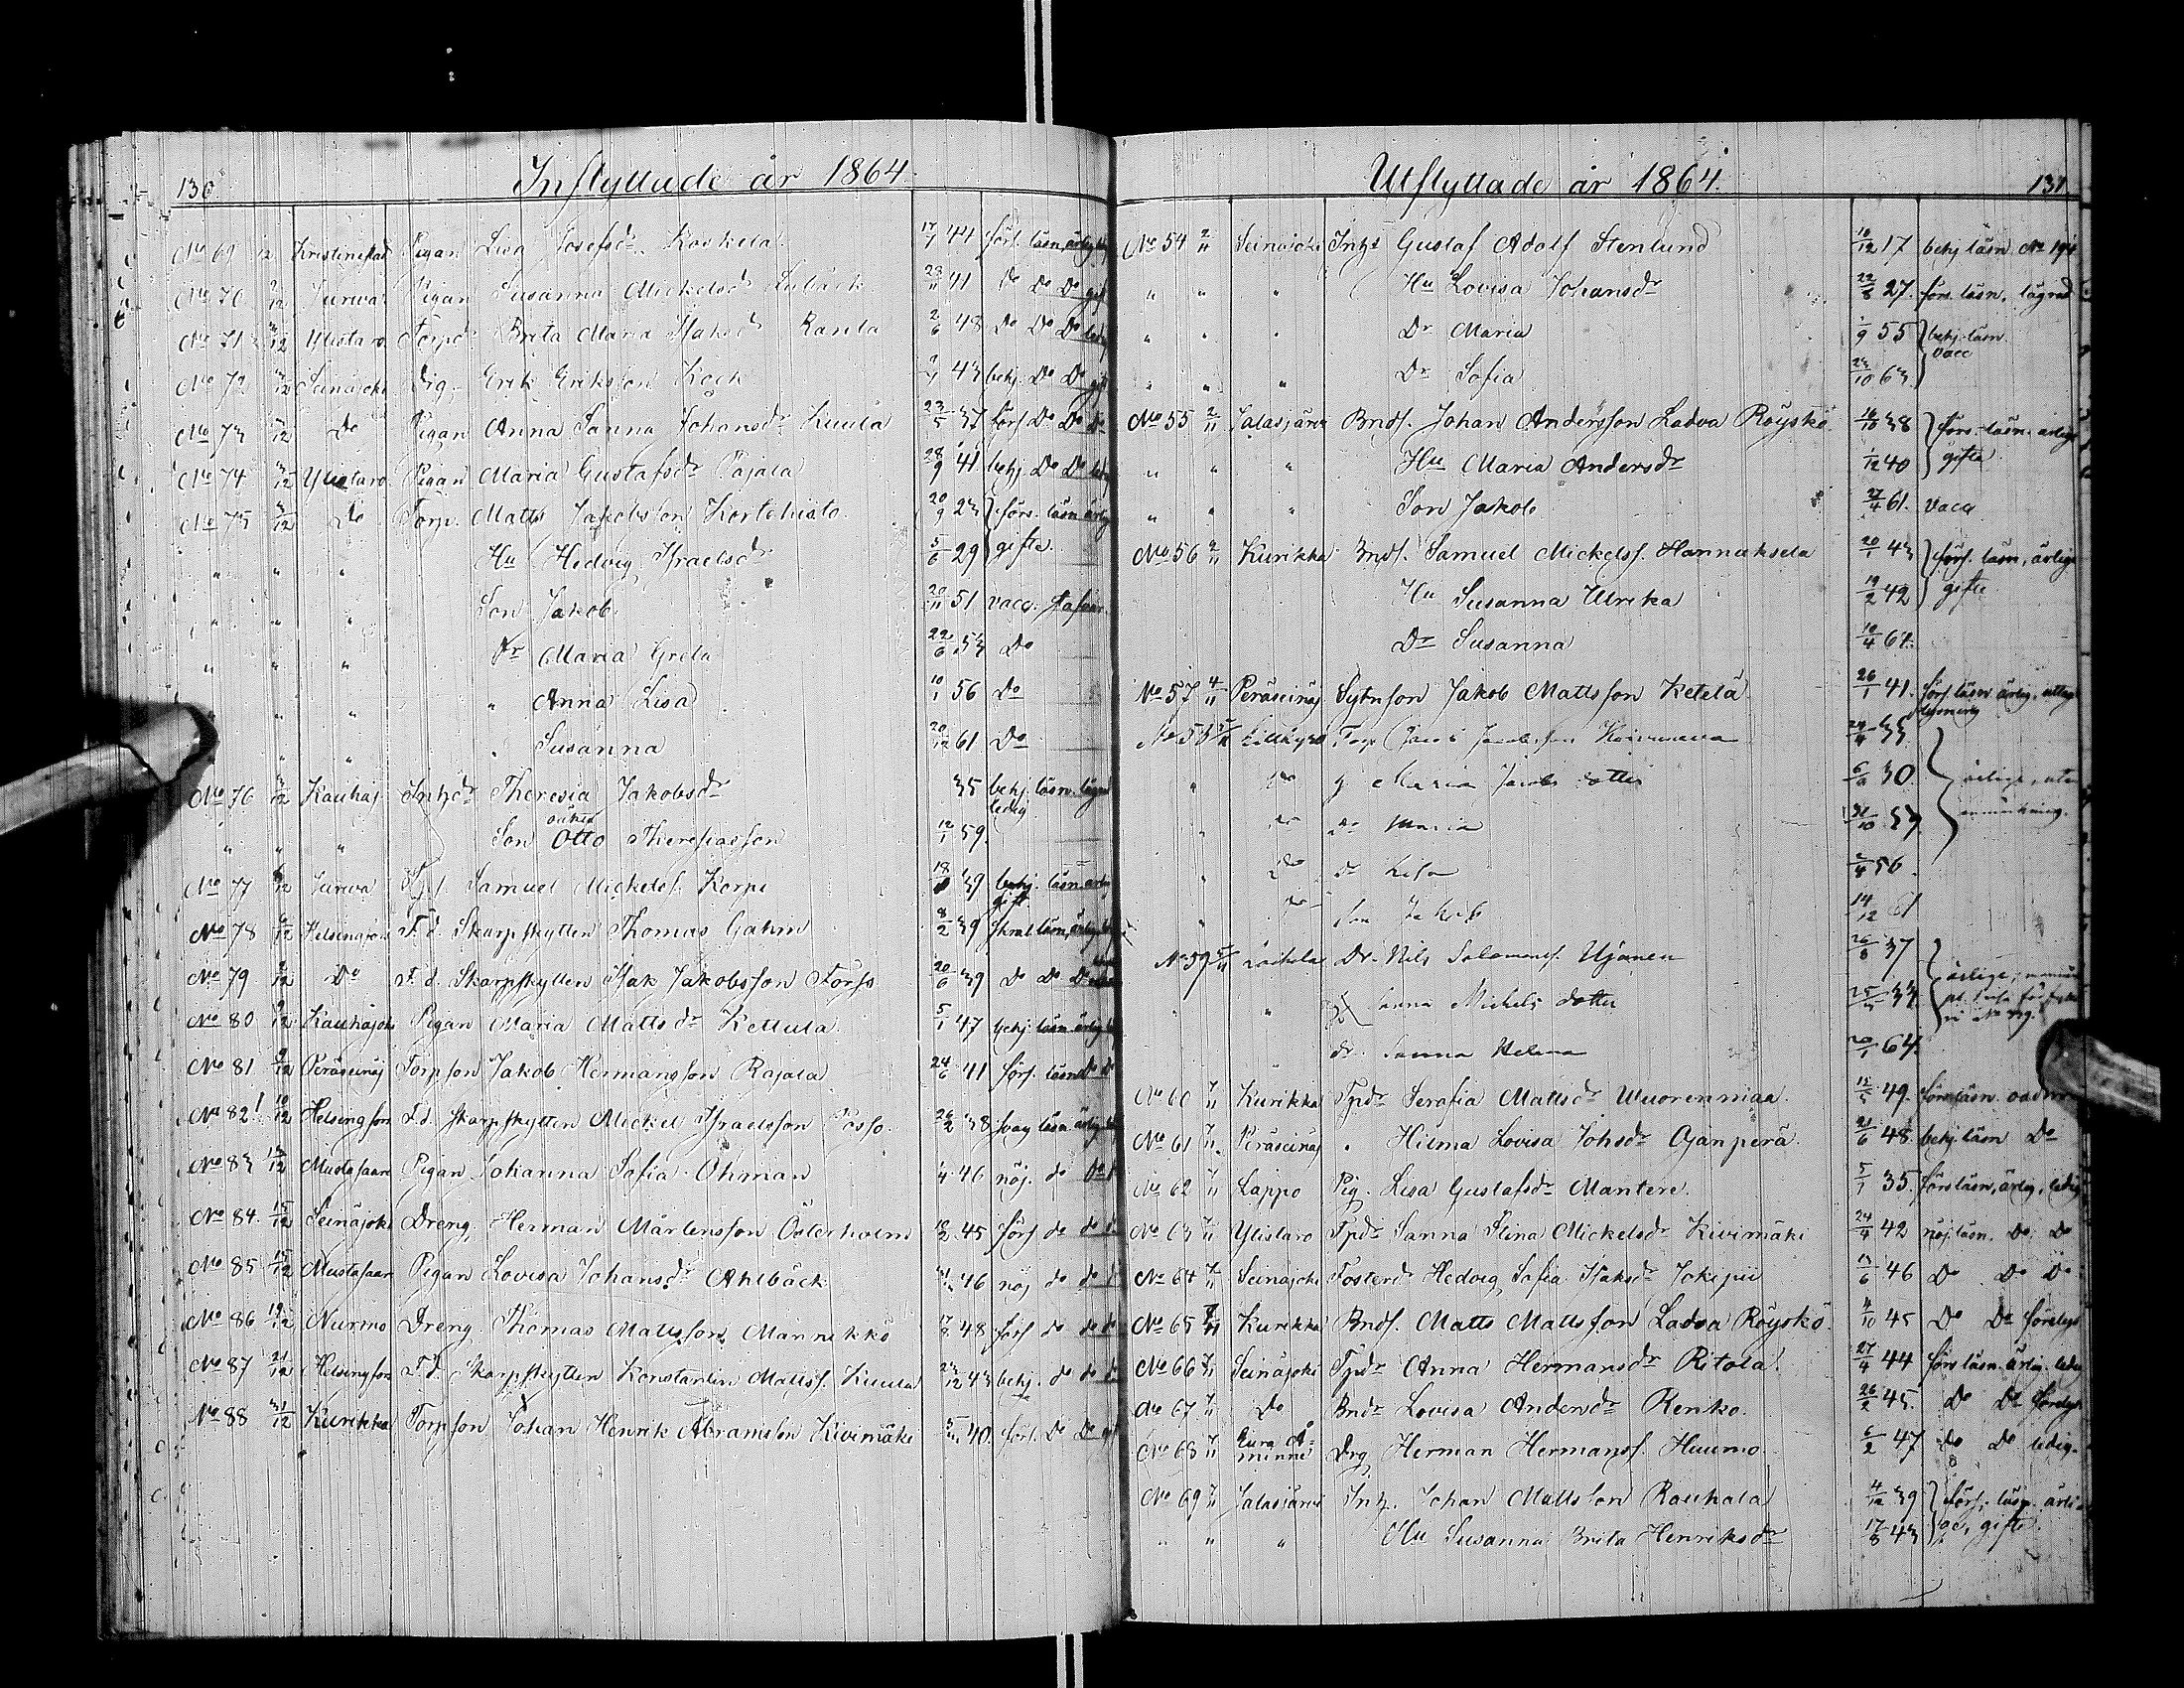 130.
Inflyttade år 1864.
No 69 12 Kristinestad Pigan Lisa Josefsdr Koskela 17/1 44 förs. läsn. ärlig
No 70 2/12 Jurwa Pigan Susanna Mickelsdr 23/11 41 Do Do Do gift
No 71 12 Ylistaro Torpdr Brita Maria Isaksdr Ranta 2/6 48 Do Do Do ledig
No 72 12 Seinäjoki Dräg. Erik Eriksson Kock 43 behj. Do Do gift
No 73 12 Do Pigan Anna Sanna Johansdr Kuula 23/5 37 förs Do Do Do
No 74 3/12 Ylistaro Pigan Maria Gustafsdr Pajala 28/9 41 behj. Do Do ledig
No 75 3/12 Do Torp. Matts Jakobsson Kortehisto 20/9 23 förs. läsn ärlig
" " " Hu Hedvig Israelsdr 5/6 29 gifte
" " " Son Jakob 20/11 51 vacc.
" " Dr Maria Greta 22/6 53 Do
" " " Anna Lisa 10/1 56 Do
" " " Susanna 20/12 61 Do
No 76 3/12 Kauhaj. Inhdr Theresia Jakobsdr 35 behj. läsn. lägrad ledig
" " " Son oäkta Otto Theresiasson 12/1 59.
No 77 6/12 Jurwa Samuel Mickelss. Korpi 18 39 behj. läsn. ärlig gift
No 78 6/12 Helsingfors F.d. Skarpskytten Thomas Gahm 8/2 39 läsn, ärlig
No 79 9/12 Do F.d. Skarpskytten Isak Jakobsson Forss 20/6 39 Do Do Do
No 80 9/12 Kauhajoki Pigan Maria Mattsdr Kettula 5/1 47 behj. läsn ärlig
No 81 9/12 Peräseinäj Torpson Jakob Hermansson Rajala 24/6 41 förs. läsn Do
No 82 10/12 Helsingfors F.d. skarpskytten Mickel Israelsson Posso. 26/2 38 svag läsn ärlig
No 83 12/12 Mustasaari Pigan Johanna Sofia Öhman 1/4 46 nöj. do Do
No 84. 15/12 Seinäjoki Dreng. Herman Mårtensson Österholm 18/2 45 förs do do
No 85 15/12 Mustasaari Pigan Lovisa Johansdr Ahlbäck 46 nöj do do
No 86 19/12 Nurmo Dreng. Thomas Mattsson Männikkö 17/8 48 förs do do
No 87 21/12 Helsingfors F.d. Skarpskytten Konstantin Mattss. Kuula 23/12 43 behj. do do
No 88 31/12 Kurikka Torpson Johan Henrik Abramsson Kivimäki 5 40. förs. Do Do gift
Utflyttade år 1864.
131
No 54 2/11 Seinäjoki Inhs Gustaf Adolf Stenlund 10/12 17 behj läsn No 194
" " " Hu Lovisa Johansdr 22/8 27. förs. läsn, lägrad
" " " Dr Maria 1/9 55 behj läsn.
" " " Dr Sofia 23/10 63 vacc
No 55 2/11 Jalasjärvi Bnds. Johan Andersson Ladva Röyskö 16/10 38 förs.-läsn. ärlige
" " " Hu Maria Andersdr 1/12 40 gifta
" " " Son Jakob 27/4 61. vacc
No 56 2/11 Kurikka Bnds. Samuel Mickelss. Hannuksela 20/1 43 förs. läsn, ärlige
Hu Susanna Ulrika 19/2 42 gifte
Dr Susanna 10/4 64.
No 57 4/11 Peräseinäj Sytnson Jakob Mattsson Ketelä 26/1 41. förs läsn ärlig,
No 58 Lillkyro Torp. Koivumaa 35
" Do Maria Jacobs dotter 6 30. ärlige, utan
" Do dr Maria 31/10 53 anmärkning.
" Do dr Lisa 2/4 56
" Do son Jakob 14/12 61
No 59 Laihela Dr. Nils Salomonss. Ujanen 26/8 37
" " Sanna Michels dotter 25 34
dr. Sanna Helena 20/1 64.
No 60 7/11 Kurikka Tpdr Serafia Mattsdr Wuorenmaa. 12/5 49. förs läsn.
No 61 7/11 Peräseinäj " Hilma Lovisa Johsdr Ojanperä 21/6 48. behj. läsn Do
No 62 7/11 Lappo Pig. Lisa Gustafsdr Mantere. 5/1 35. förs läsn, ärlig, ledig
No 63 7/11 Ylistaro Tpdr Sanna Stina Mickelsdr Kivimäki 24/4 42 nöj. läsn. Do Do
No 64 7/11 Seinäjoki Fosterdr Hedvig Sofia Isaksdr Jokipii 13/6 46 Do Do Do
No 65 7/11 Kurikka Bnds. Matts Mattsson Ladva Röyskö. 4/10 45 Do Do
No 66 7/11 Seinäjoki Tpdr Anna Hermansdr Ritola 27/4 44 förs läsn. ärlig. ledig
No 67 7/11 Do Bndr Lovisa Andersdr Renko. 26/2 45. Do Do
No 68 7/11 Eura Å-minne Drg Herman Hermanss. Huumo 6/2 47 Do Do ledig.
No 69 7/11 Jalasjärvi Inh. Johan Mattsson Rauhala 4/12 39 förs. läsn. ärlig
" " " Hu Susanna Brita Henriksdr 17/8 43 gifte.